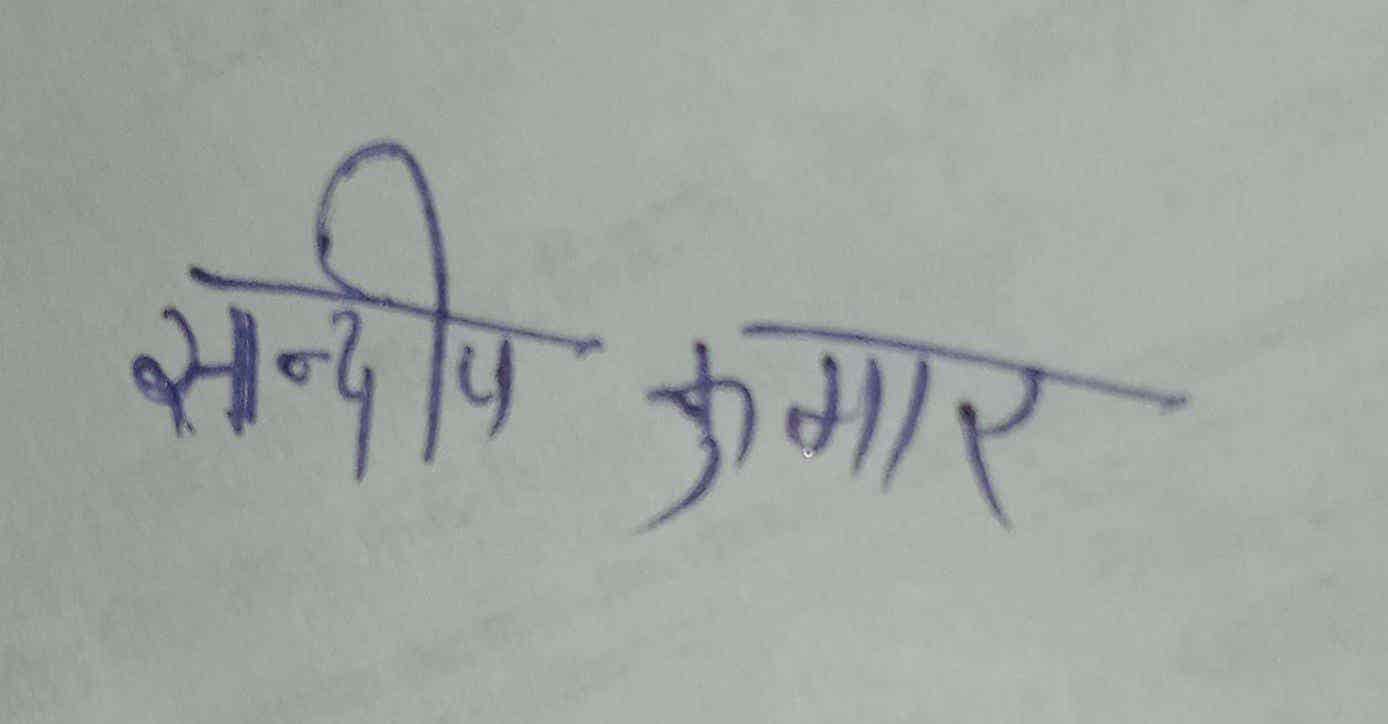 सन्दीप कुमार